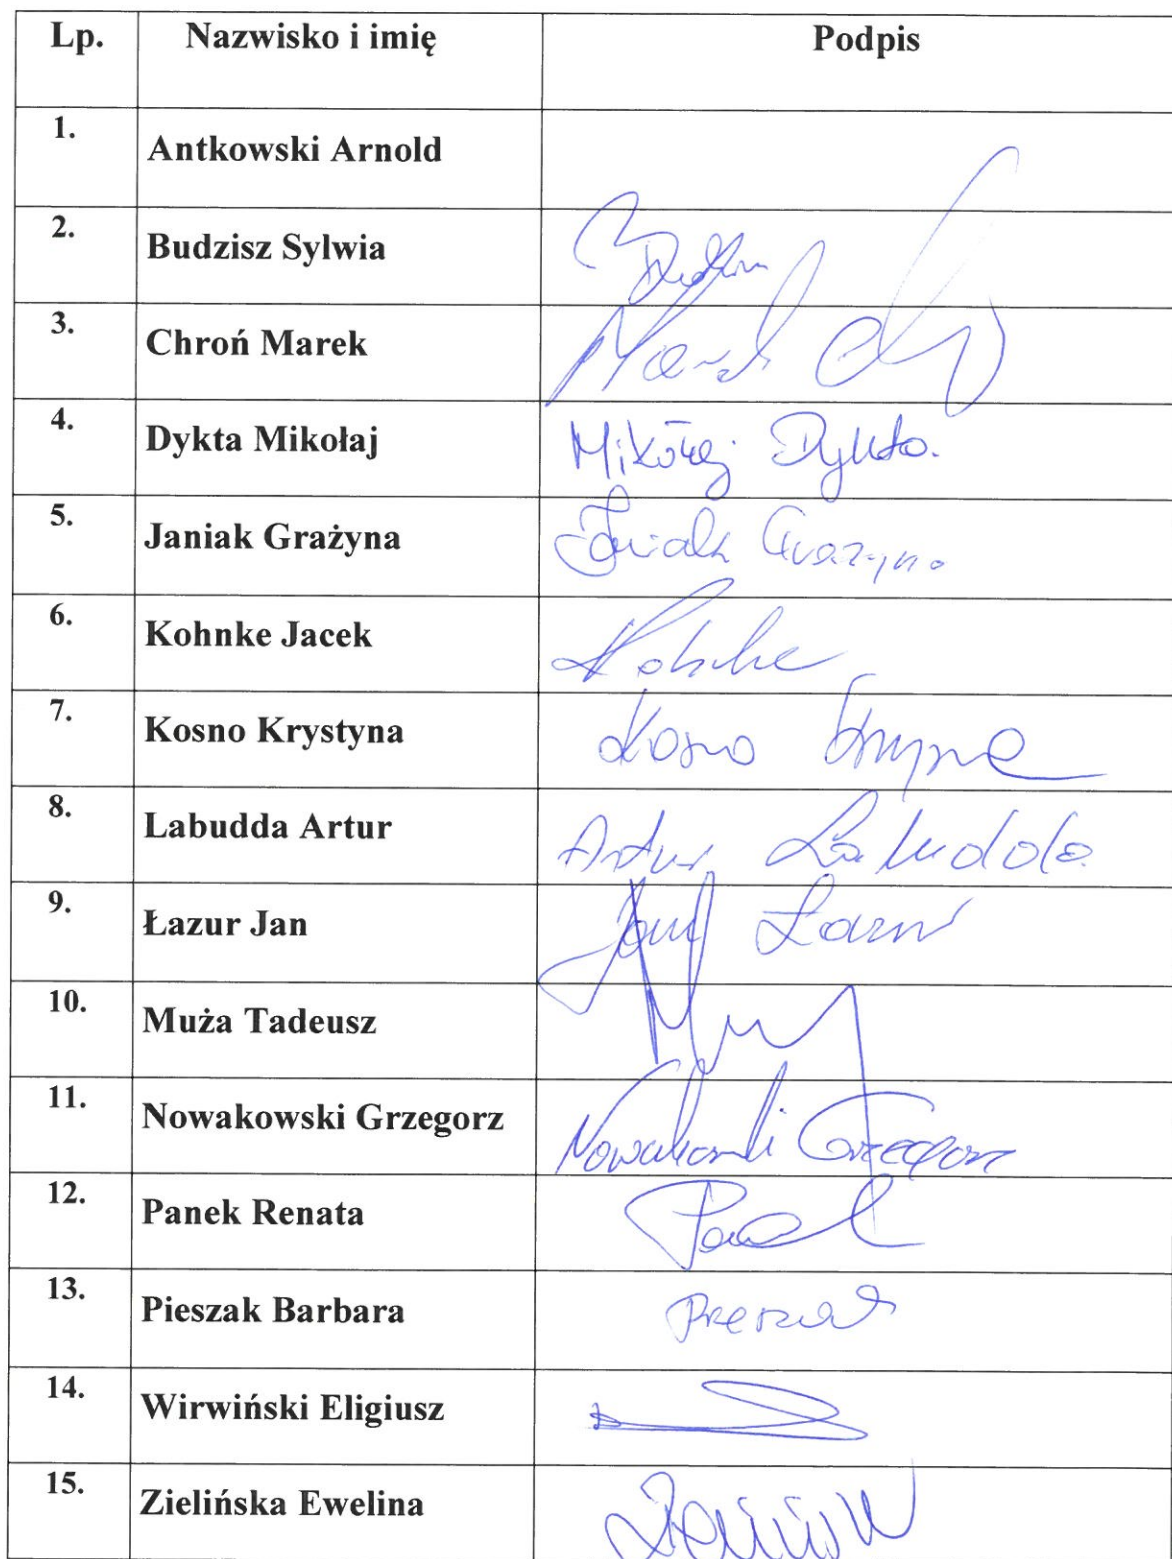 Lp. Nazwisko i imię Podpis
1. Antkowski Arnold
2. Budzisz Sylwia
3. Chroń Marek Marek
4. Dykta Mikołaj Mikołaj Dykta.
5. Janiak Grażyna Janiak Grażyna
6. Kohnke Jacek Kohnke
7. Kosno Krystyna Kosno Krystyna
8. Labudda Artur Artur Labudda
9. Łazur Jan Jan Łazur
10. Muża Tadeusz
11. Nowakowski Grzegorz Nowakowski Grzegorz
12. Panek Renata Panek
13. Pieszak Barbara Pieszak
14. Wirwiński Eligiusz
15. Zielińska Ewelina